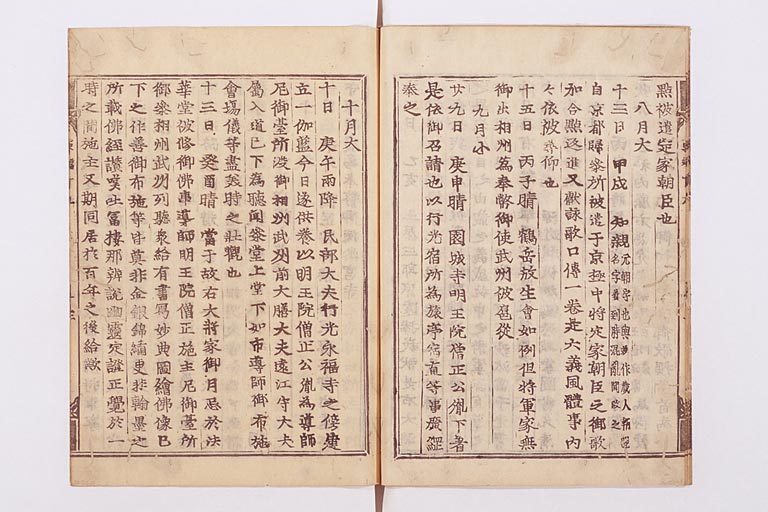 點被遣定家朝臣也
八月大
十三日 甲戌 知親 元朝字也與
名字着到時混乱間改之
自京都歸參所被遣于京極中將定家朝臣之御歌
加合點返進又獻詠歌口傳一卷是六義風體事内
々依被尋仰也
十五日 丙子晴 鶴岳放生會如例但將軍家無
御出相州為奉幣御使武州被扈從
九月小
廿九日 庚申晴 園城寺明王院僧正公胤下着
是依御召請也以行光宿所為旅亭宿直等事廣經
奉之
十月大
十日 庚午雨降 民部大夫行光永福寺之傍建
立一伽藍今日遂供養以明王院僧正公胤為導師
尼御臺所渡御相州武州前大膳大夫遠江守大夫
屬入道已下為聽聞參堂上堂下如市導師御布施
會塲儀等盡美時之壮觀也
十三日 癸酉晴 當于故右大將家御月忌於法
華堂被修御佛事導師明王院僧正施主尼御臺所
御參相州武州列聽衆給有書寫妙典圖繪佛像已
下之作善御布施等皆莫非金銀錦繡更非翰墨之
所載佛經讃嘆吐冨樓那辨説幽靈定證正覺於一
時之間施主又期同居於百年之後給歟